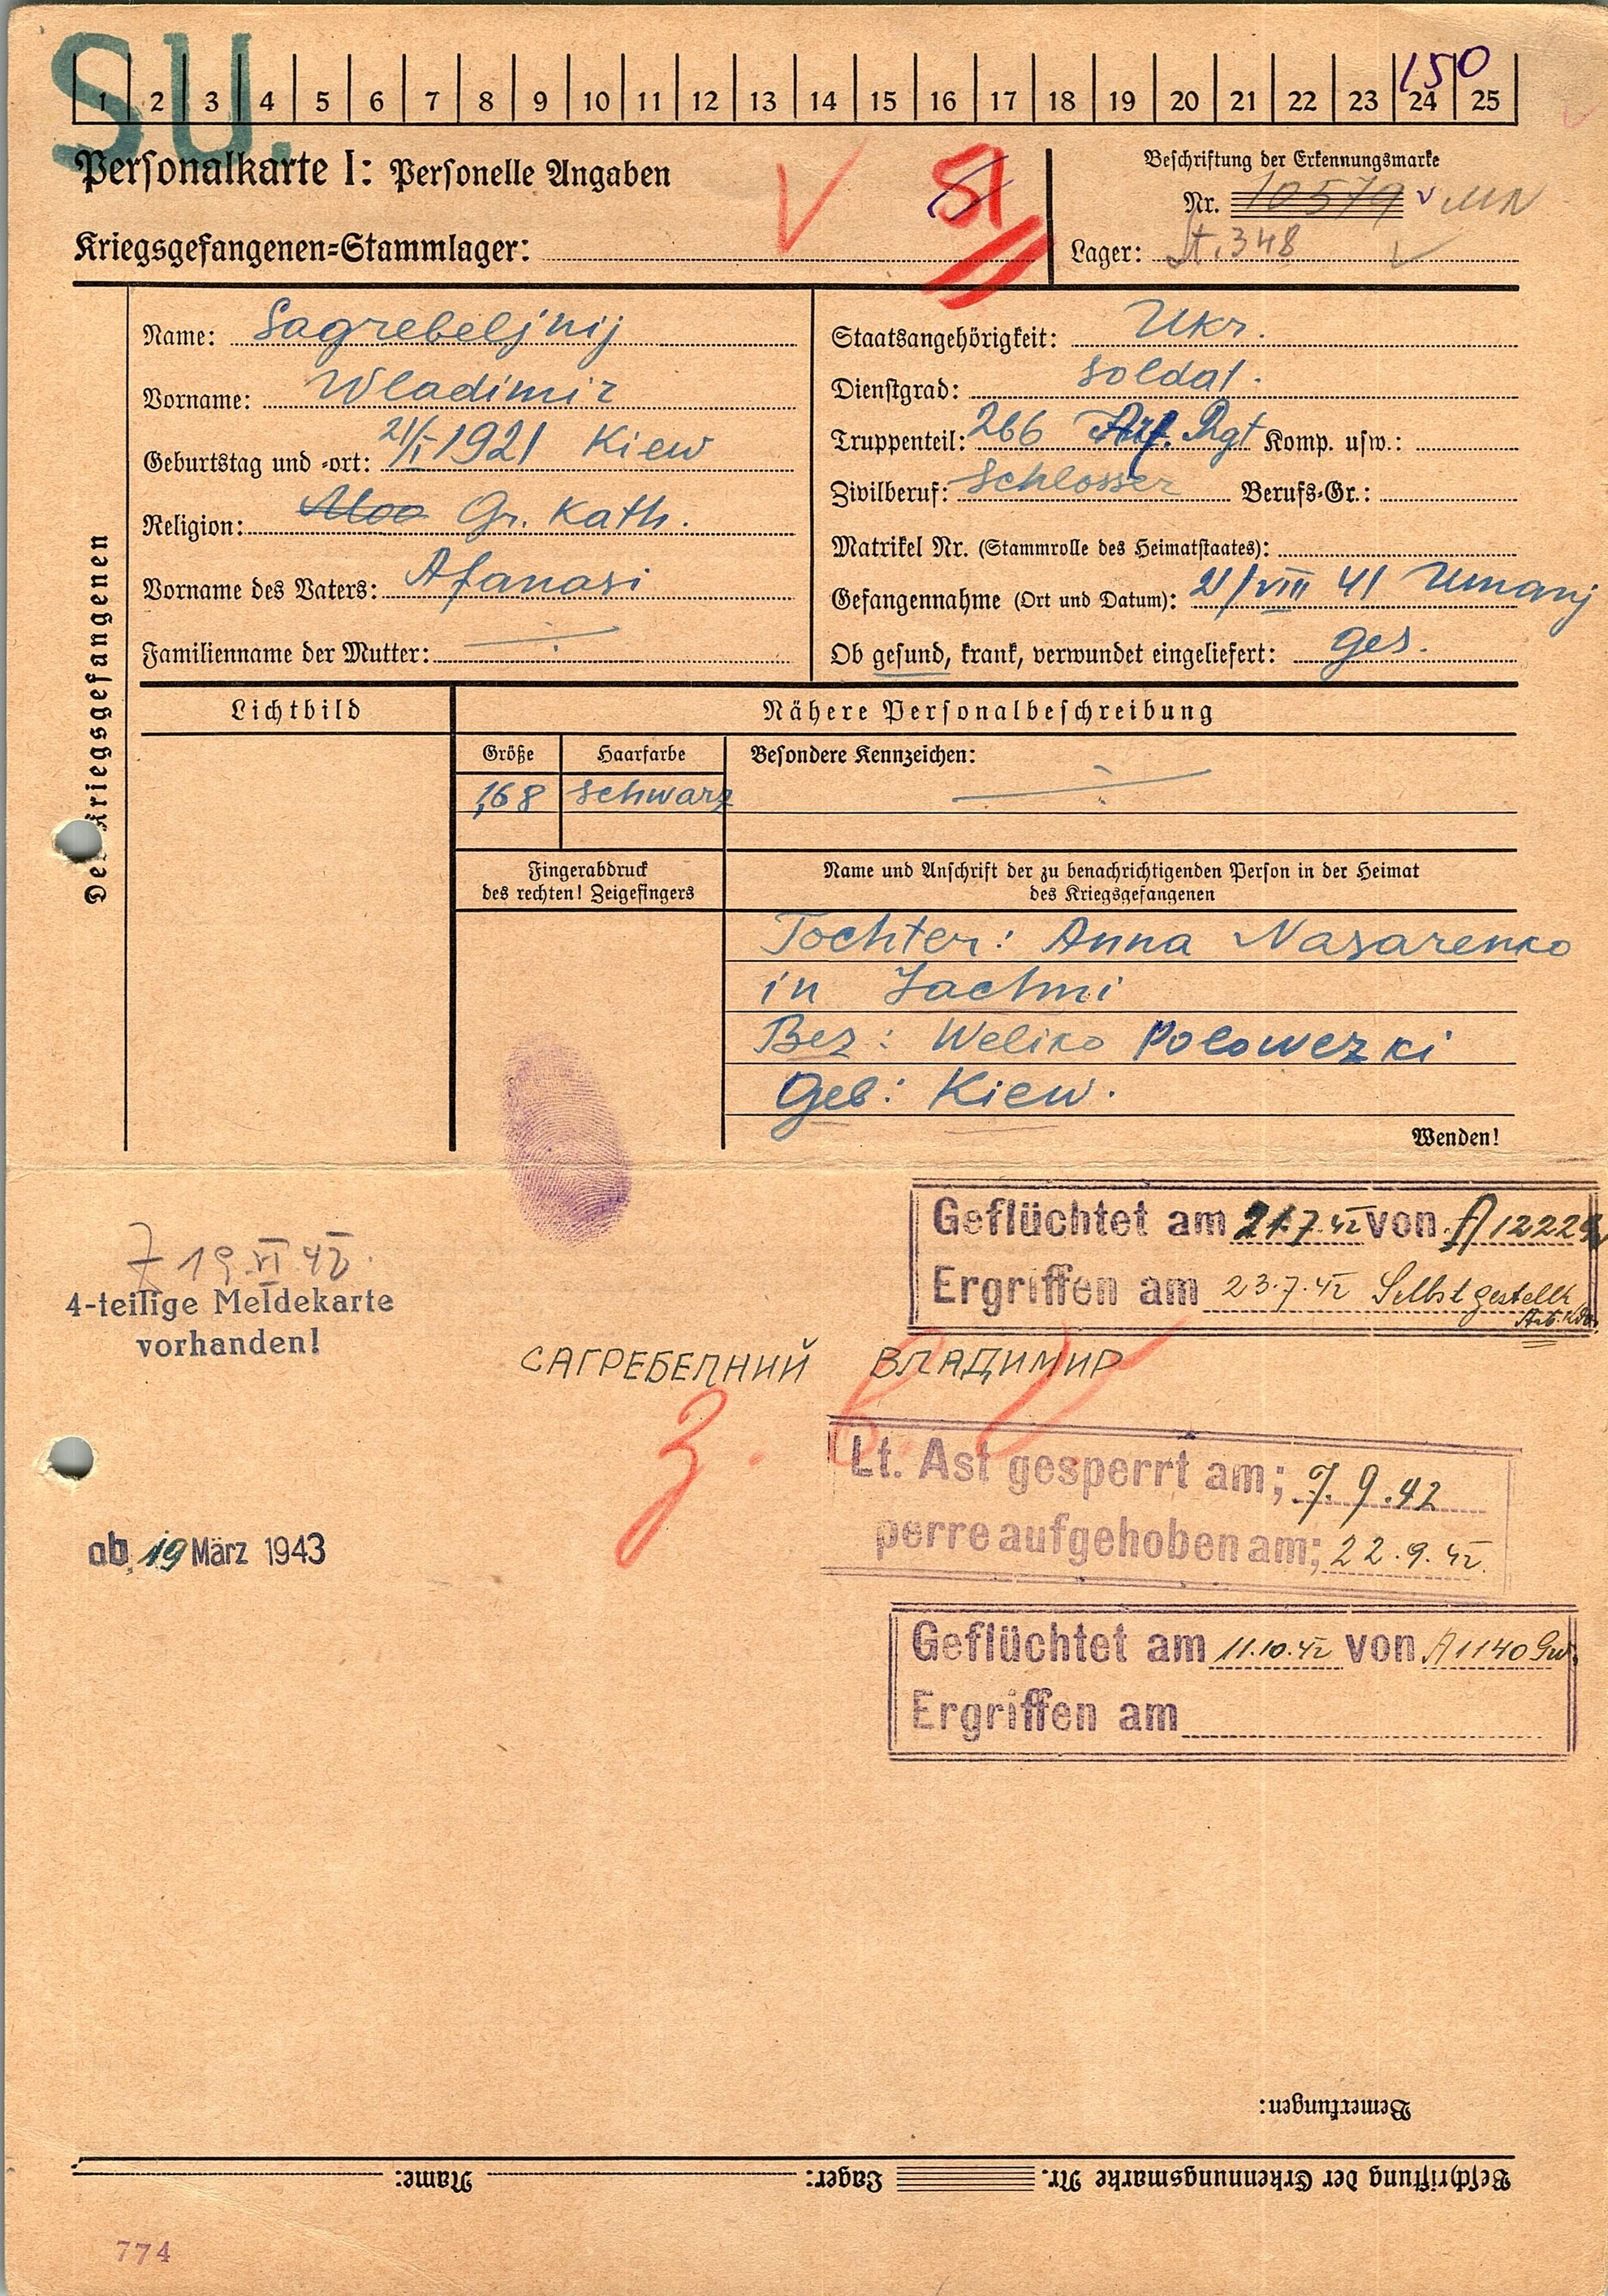 SU.
150
1 2 3 4 5 6 7 8 9 10 11 12 13 14 15 16 17 18 19 20 21 22 23 24 25
Personalkarte I: Personelle Angaben
51
Beschriftung der Erkennungsmarke
Nr. 10579
Kriegsgefangenen=Stammlager:
Lager: St. 348
Des Kriegsgefangenen
Name: Sagrebeljnij
Vorname: Wladimir
Geburtstag und -ort: 21/I 1921 Kiew
Religion: Gr. Kath.
Vorname des Vaters: Afanasi
Familienname der Mutter:
Staatsangehörigkeit: Ukr.
Dienstgrad: Soldat.
Truppenteil: 266 Rgt Komp. usw.:
Zivilberuf: Schlosser Berufs-Gr.:
Matrikel Nr. (Stammrolle des Heimatstaates):
Gefangennahme (Ort und Datum): 21/VIII 41 Umanj
Ob gesund, krank, verwundet eingeliefert: ges.
Lichtbild
Nähere Personalbeschreibung
Größe Haarfarbe Besondere Kennzeichen:
1,68 schwarz
Fingerabdruck
des rechten! Zeigefingers
Name und Anschrift der zu benachrichtigenden Person in der Heimat
des Kriegsgefangenen
Tochter: Anna Nasarenko
in Jachni
Bez: Weliko Polowezki
Geb: Kiew.
Wenden!
Geflüchtet am 21.7.42 von A 1222
Ergriffen am 23.7.42 Selbst gestellt
19 VI 42.
4-teilige Meldekarte
vorhanden!
САГРЕБЕЛНИЙ ВЛАДИМИР
z. B. V
Lt. Ast gesperrt am; 7.9.42
perre aufgehoben am; 22.9.42
ab 19 März 1943
Geflüchtet am 11.10.42 von A 1140 Gw.
Ergriffen am
Bemerkungen:
Beschriftung der Erkennungsmarke Nr. Lager: Name:
774